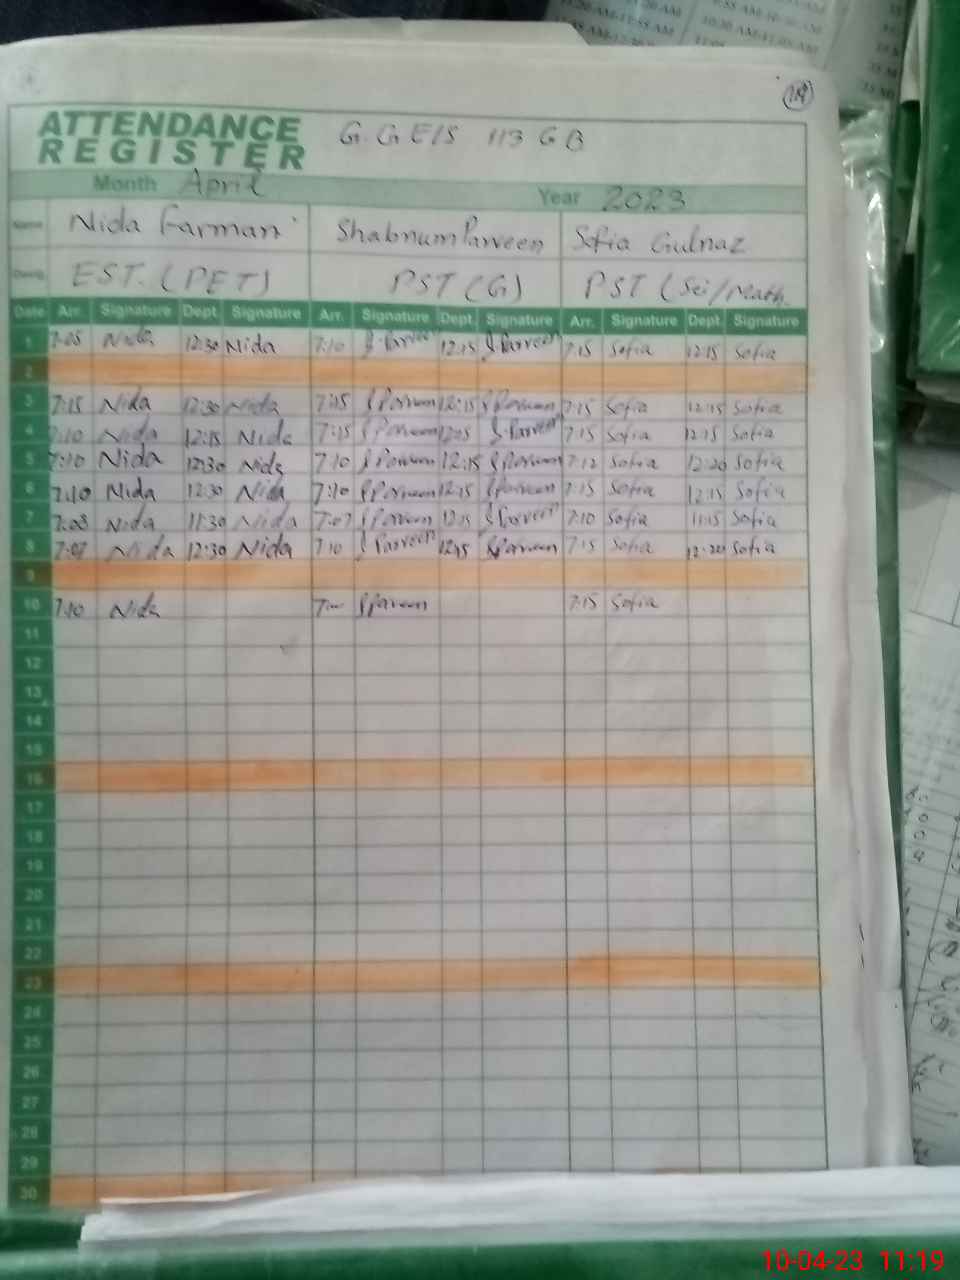 ATTENDANCE
REGISTER
G.G.E/S 113 GB
Month April Year 2023
Name Nida Farman Shabnum Parveen Sofia Gulnaz
EST. (PET) PST (G) PST (Sci/Math.
Date Arr. Signature Dept. Signature Arr. Signature Dept. Signature Arr. Signature Dept. Signature
1 7:05 Nida 12:30 Nida 7:10 12:15 S Parveen 7:15 Sofia 12:15 Sofia
2
3 7:15 Nida 12:30 Nida 7:15 S Parveen 12:15 S Parveen 7:15 Sofia 12:15 Sofia
4 7:10 Nida 12:15 Nida 7:15 S Parveen S Parveen 7:15 Sofia 12:15 Sofia
5 7:10 Nida 12:30 Nida 7:10 S Parveen 12:15 S Parveen 7:12 Sofia 12:20 Sofia
6 7:10 Nida 12:30 Nida 7:10 S Parveen 12:15 S Parveen 7:15 Sofia 12:15 Sofia
7 7:08 Nida 11:30 Nida 7:07 S Parveen S Parveen 7:10 Sofia 11:15 Sofia
8 7:07 Nida 12:30 Nida 7:10 S Parveen 12:15 S Parveen 7:15 Sofia 12:20 Sofia
9
10 7:10 Nida S Parveen 7:15 Sofia
11
12
13
14
15
16
17
18
19
20
21
22
23
24
25
26
27
28
29
30
10-04-23 11:19